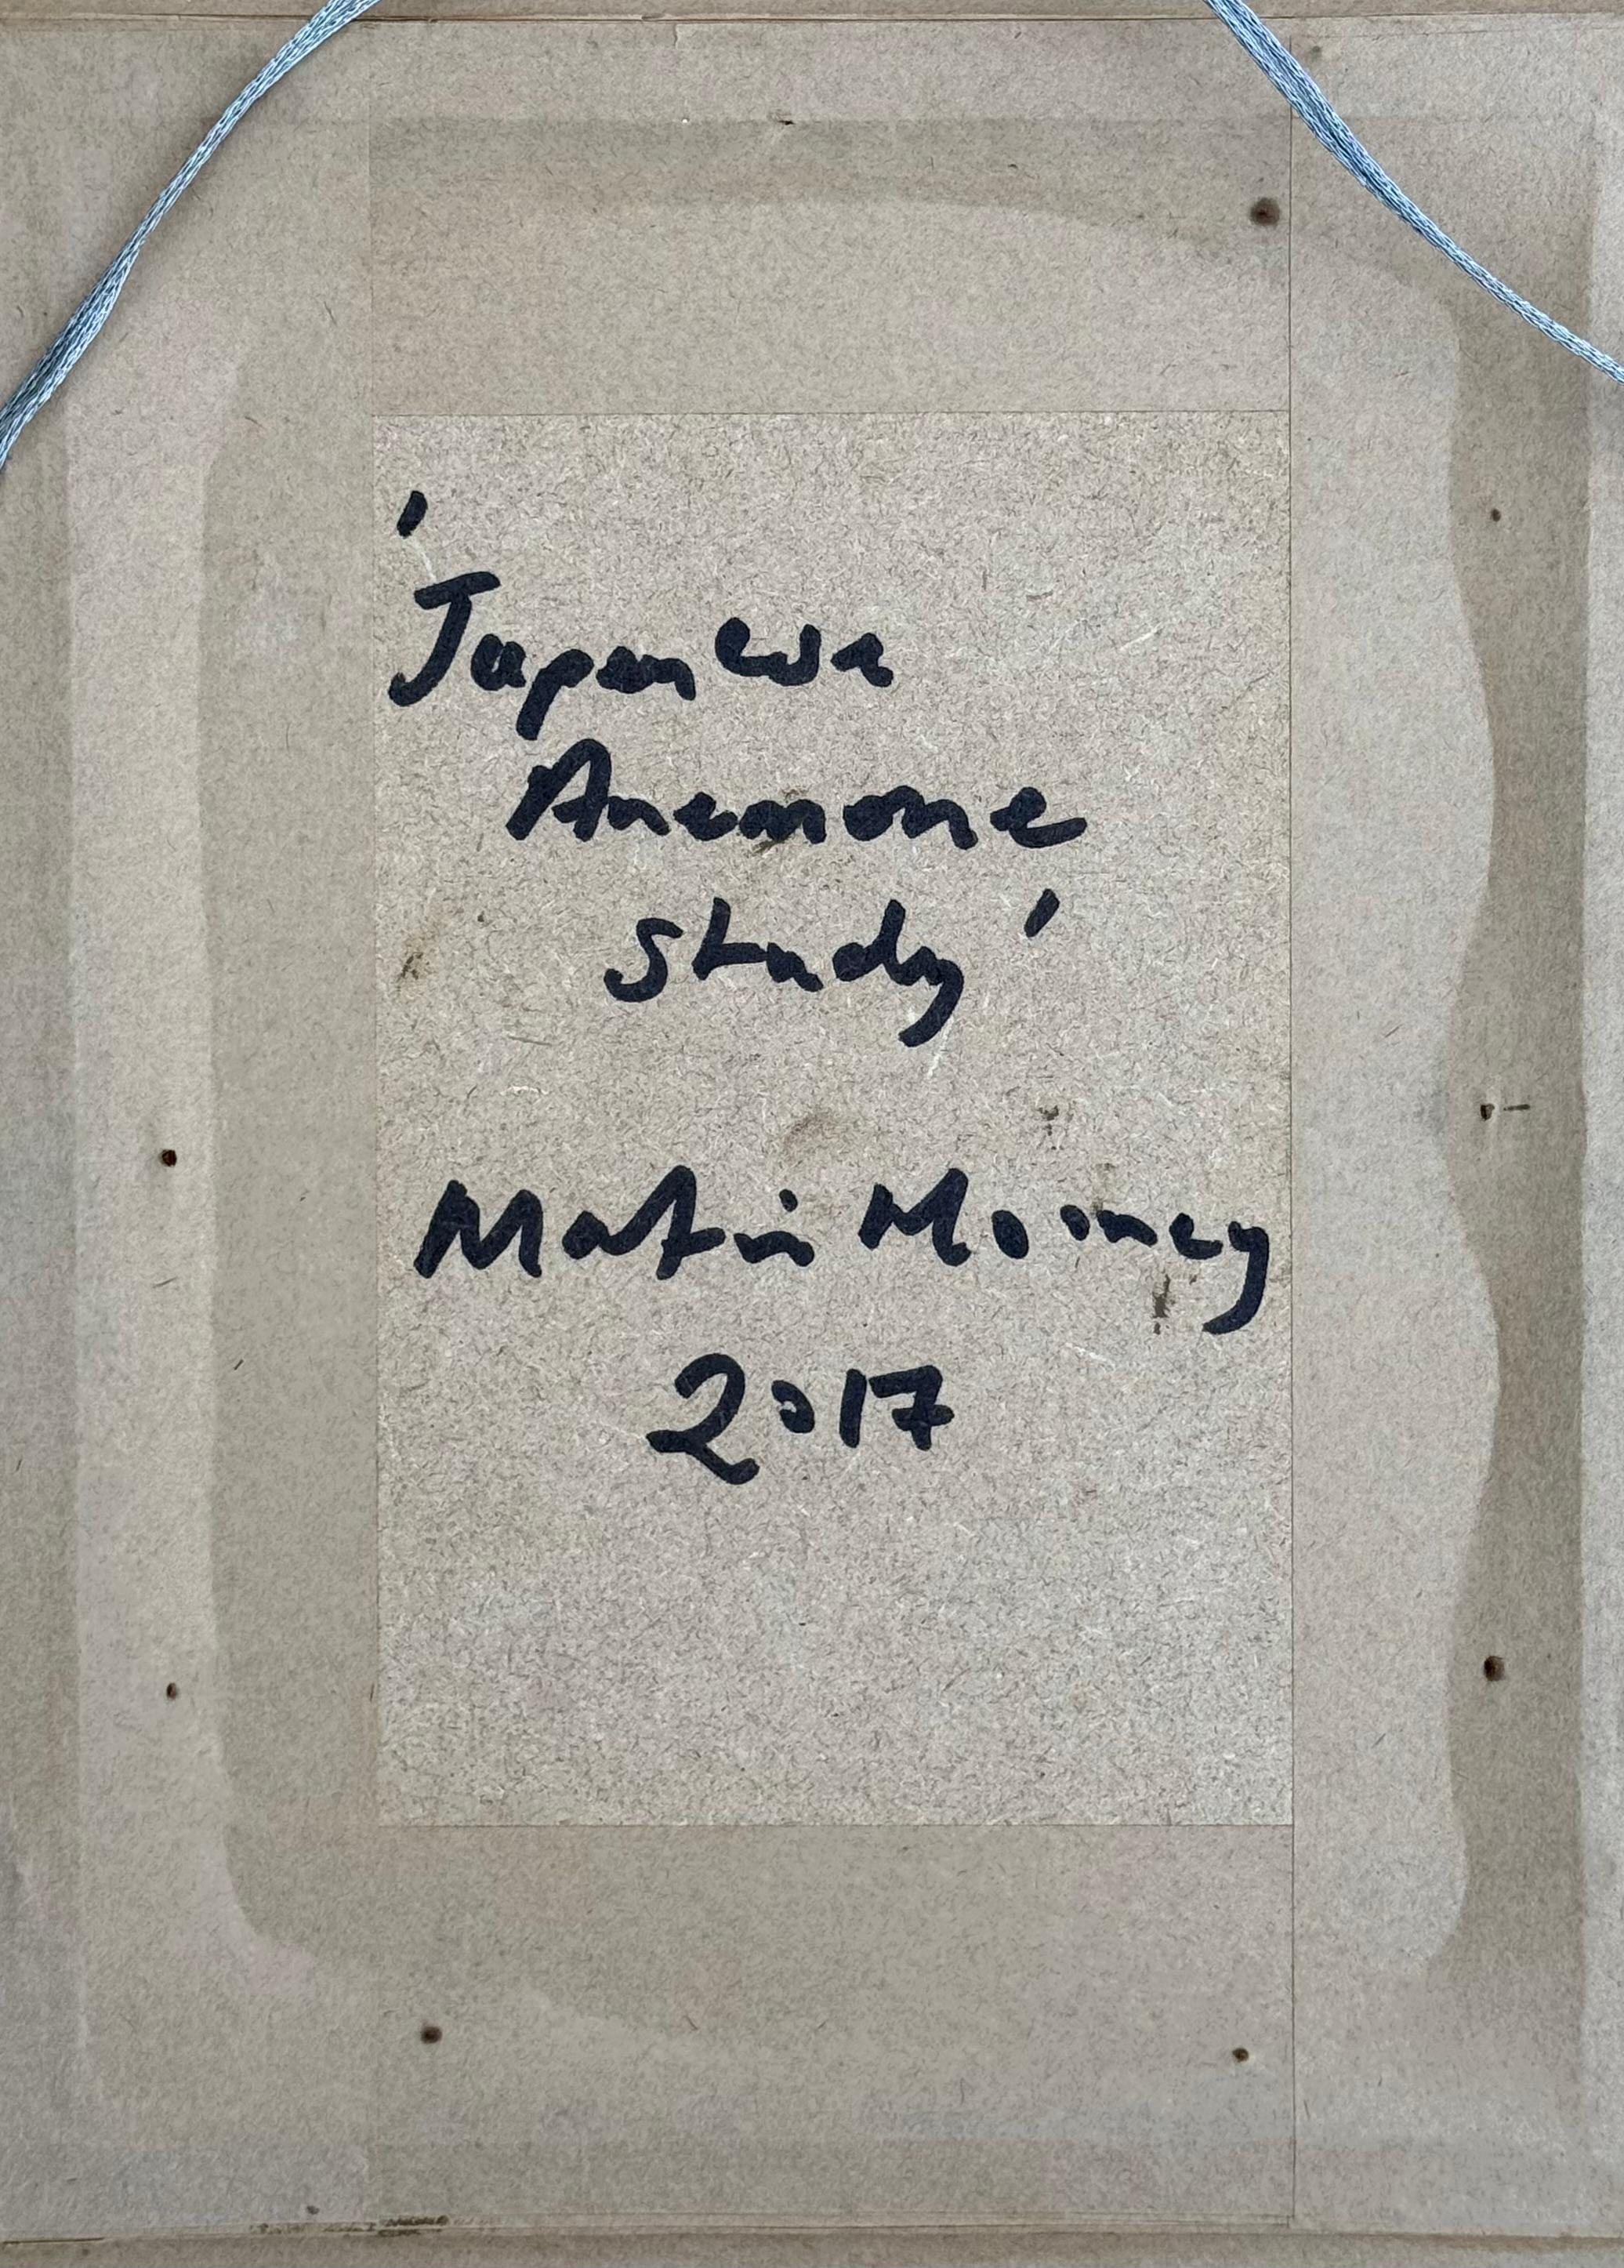 'Japanese
Anemone
study'
Martin Mooney
2017